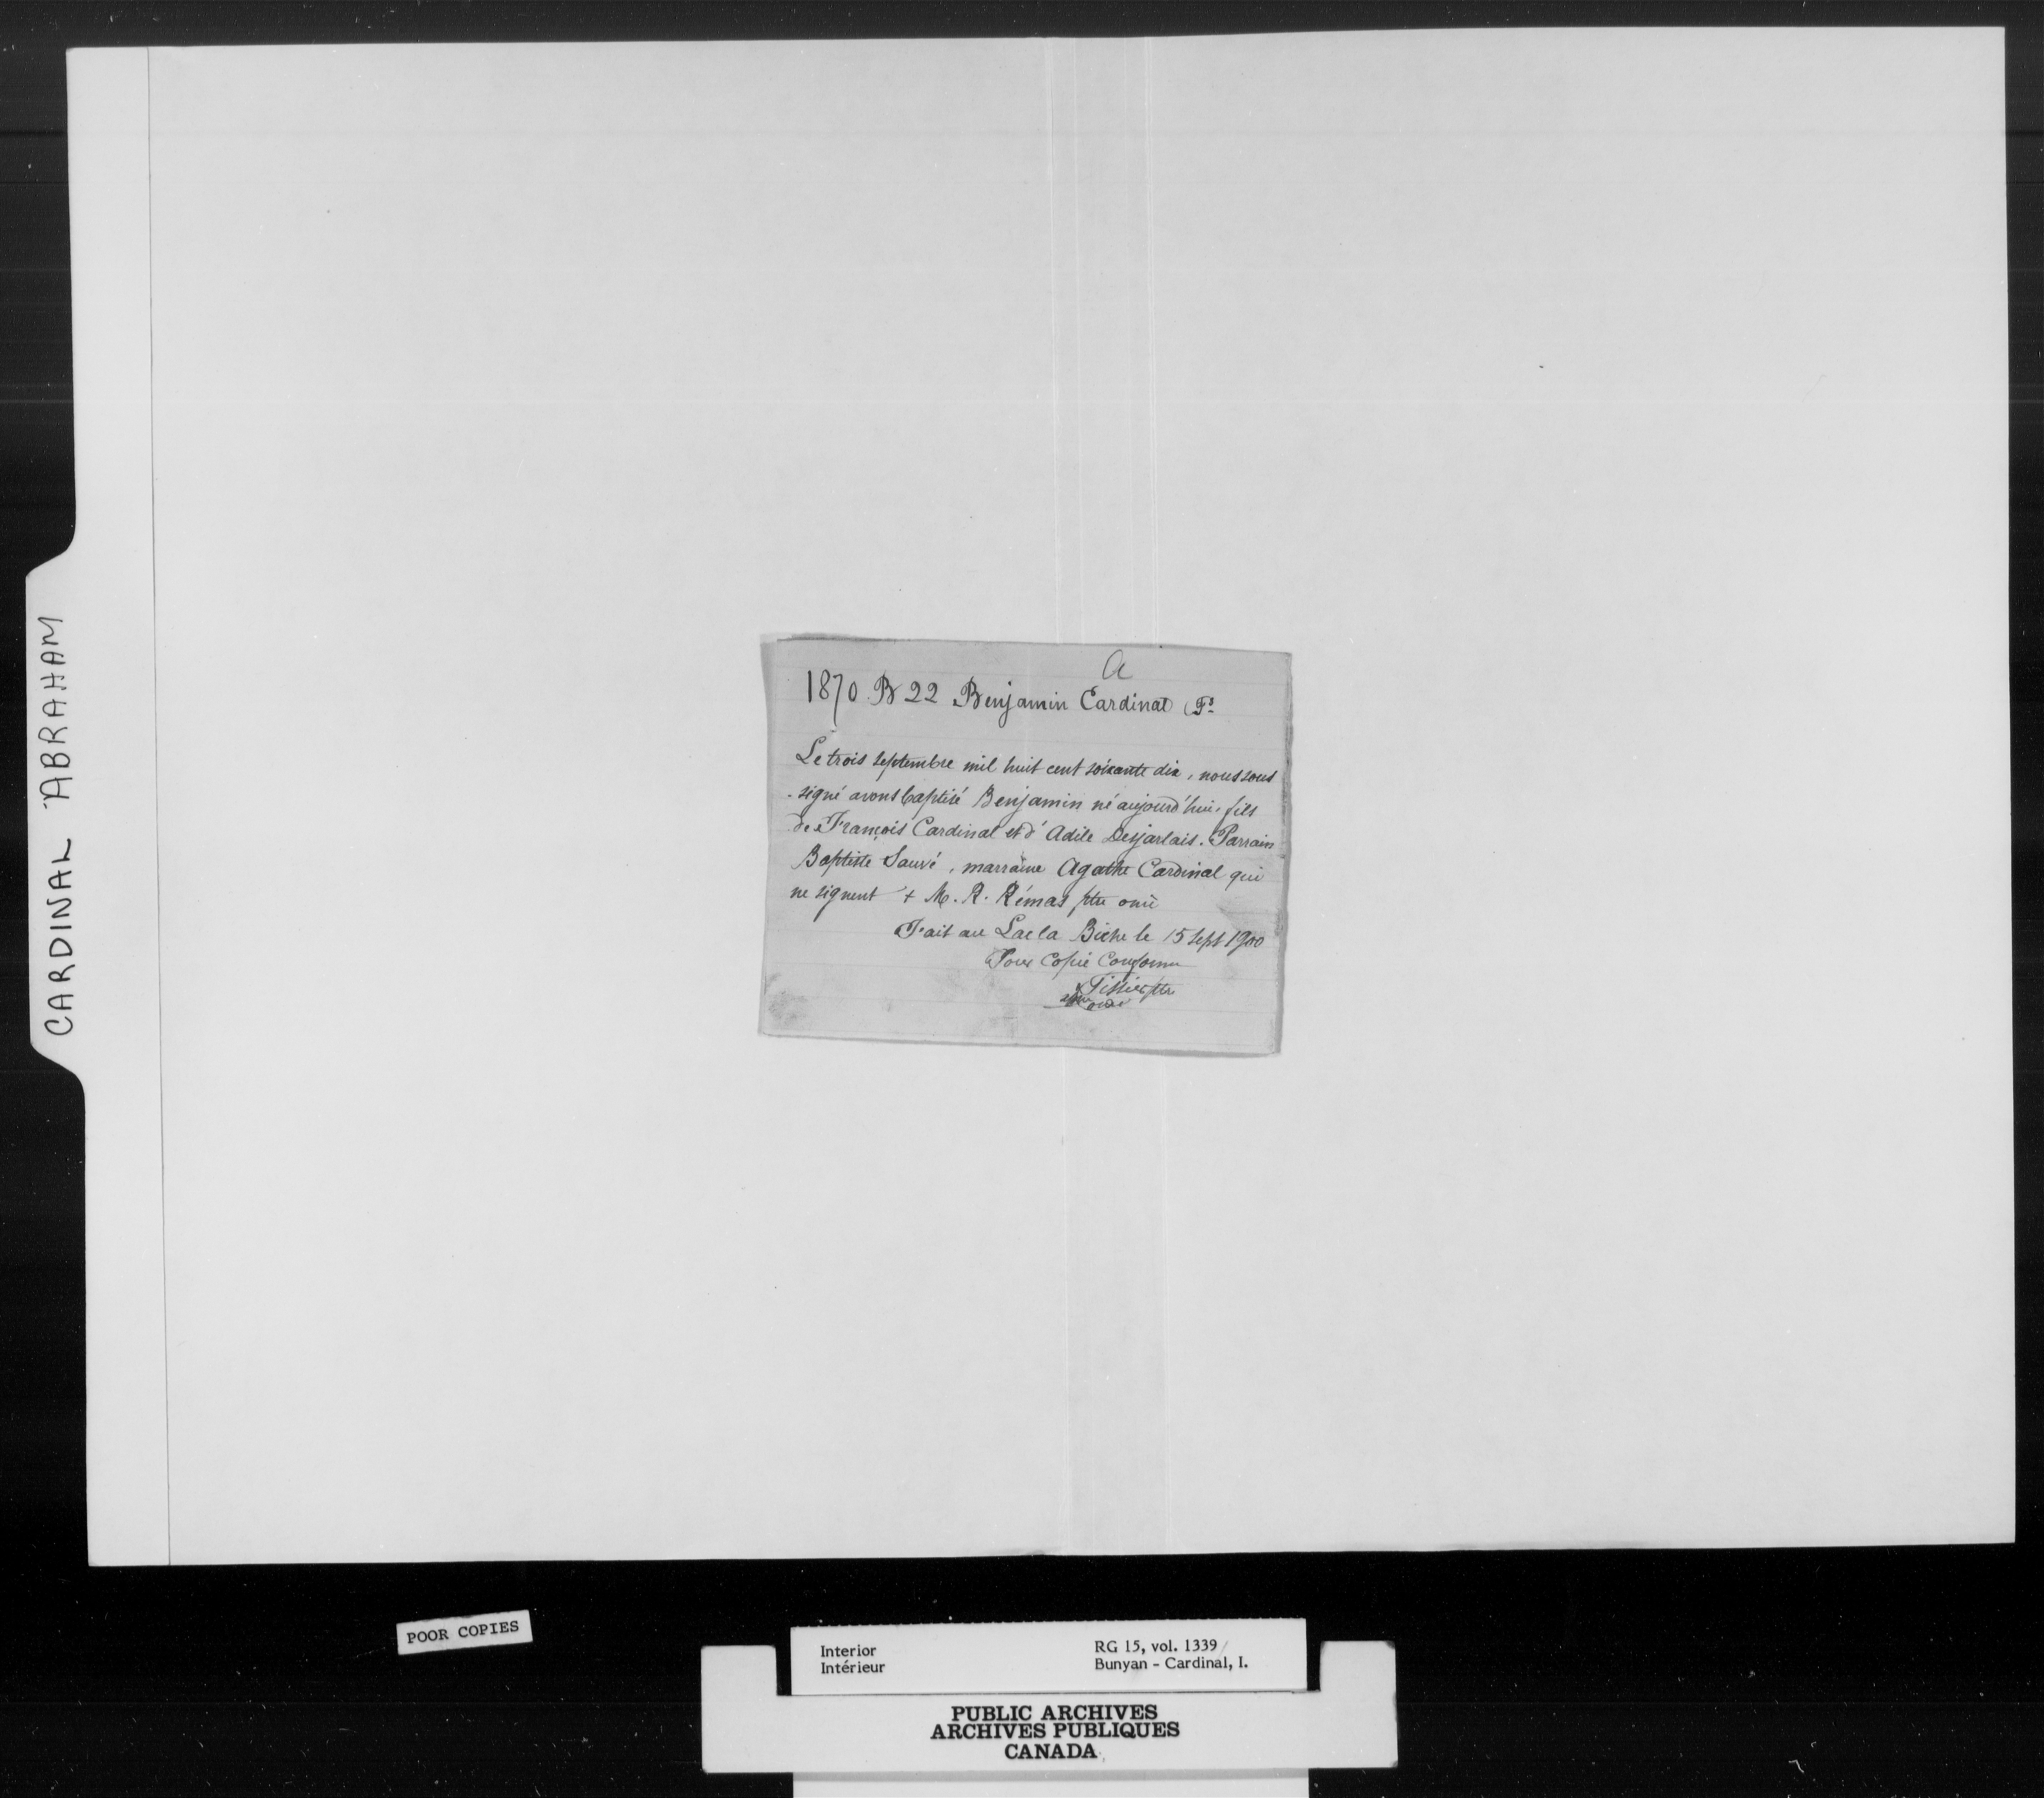 CARDINAL ABRAHAM
A
1870 B 22 Benjamin Cardinal (Fs
Le trois septembre mil huit cent soixante dix, nous sous
-signé avons baptisé Benjamin né aujourd'hui, fils
de François Cardinal et d'Adile Desjarlais. Parrain
Baptiste Sauvé, marraine Agathe Cardinal qui
ne signent + M. R. Rémas ptre omi
Fait au Lac la Biche le 15 Sept 1900
Pour Copie Conforme
Tissier ptr
POOR COPIES
Interior RG 15, vol. 1339
Intérieur Bunyan - Cardinal, I.
PUBLIC ARCHIVES
ARCHIVES PUBLIQUES
CANADA